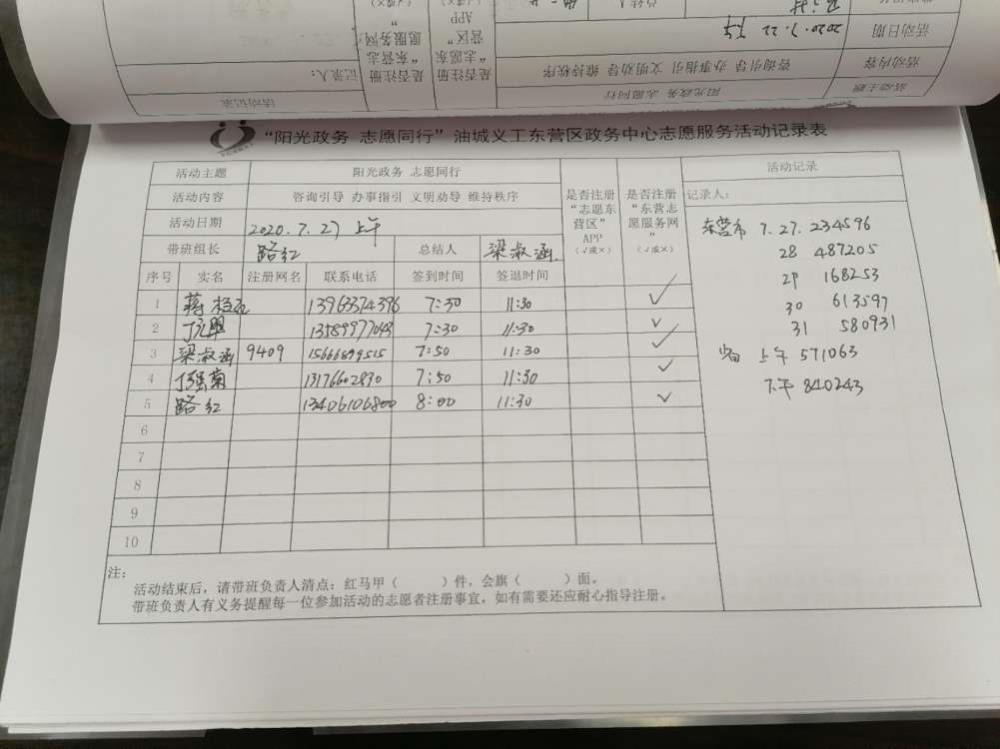 活动记录
活动主题 阳光政务 志愿同行
记录人：
活动内容 咨询引导 办事指引 文明劝导 维持秩序
活动日期 2020.7.22 下午
是否注册“志愿东营区”APP（√或×）
是否注册“东营志愿服务网”
总结人
“阳光政务 志愿同行”油城义工东营区政务中心志愿服务活动记录表
活动主题 阳光政务 志愿同行
活动内容 咨询引导 办事指引 文明劝导 维持秩序
活动日期 2020.7.27 上午
带班组长 路红 总结人 梁淑涵
序号 实名 注册网名 联系电话 签到时间 签退时间
是否注册
“志愿东
营区”
APP
（√或×）
是否注册
“东营志
愿服务网
”
（√或×）
1 蒋 13963374396 7:30 11:30 ✓
2 13589977043 7:30 11:30 ✓
3 梁淑涵 9409 15666899515 7:50 11:30 ✓
4 菊 13176602830 7:50 11:30 ✓
5 路红 13406106800 8:00 11:30 ✓
6
7
8
9
10
活动记录
记录人：
东营市 7.27. 234596
28 487205
29 168253
30 613597
31 580931
上午 571063
下午 840243
注：
活动结束后，请带班负责人清点：红马甲（ ）件，会旗（ ）面。
带班负责人有义务提醒每一位参加活动的志愿者注册事宜，如有需要还应耐心指导注册。